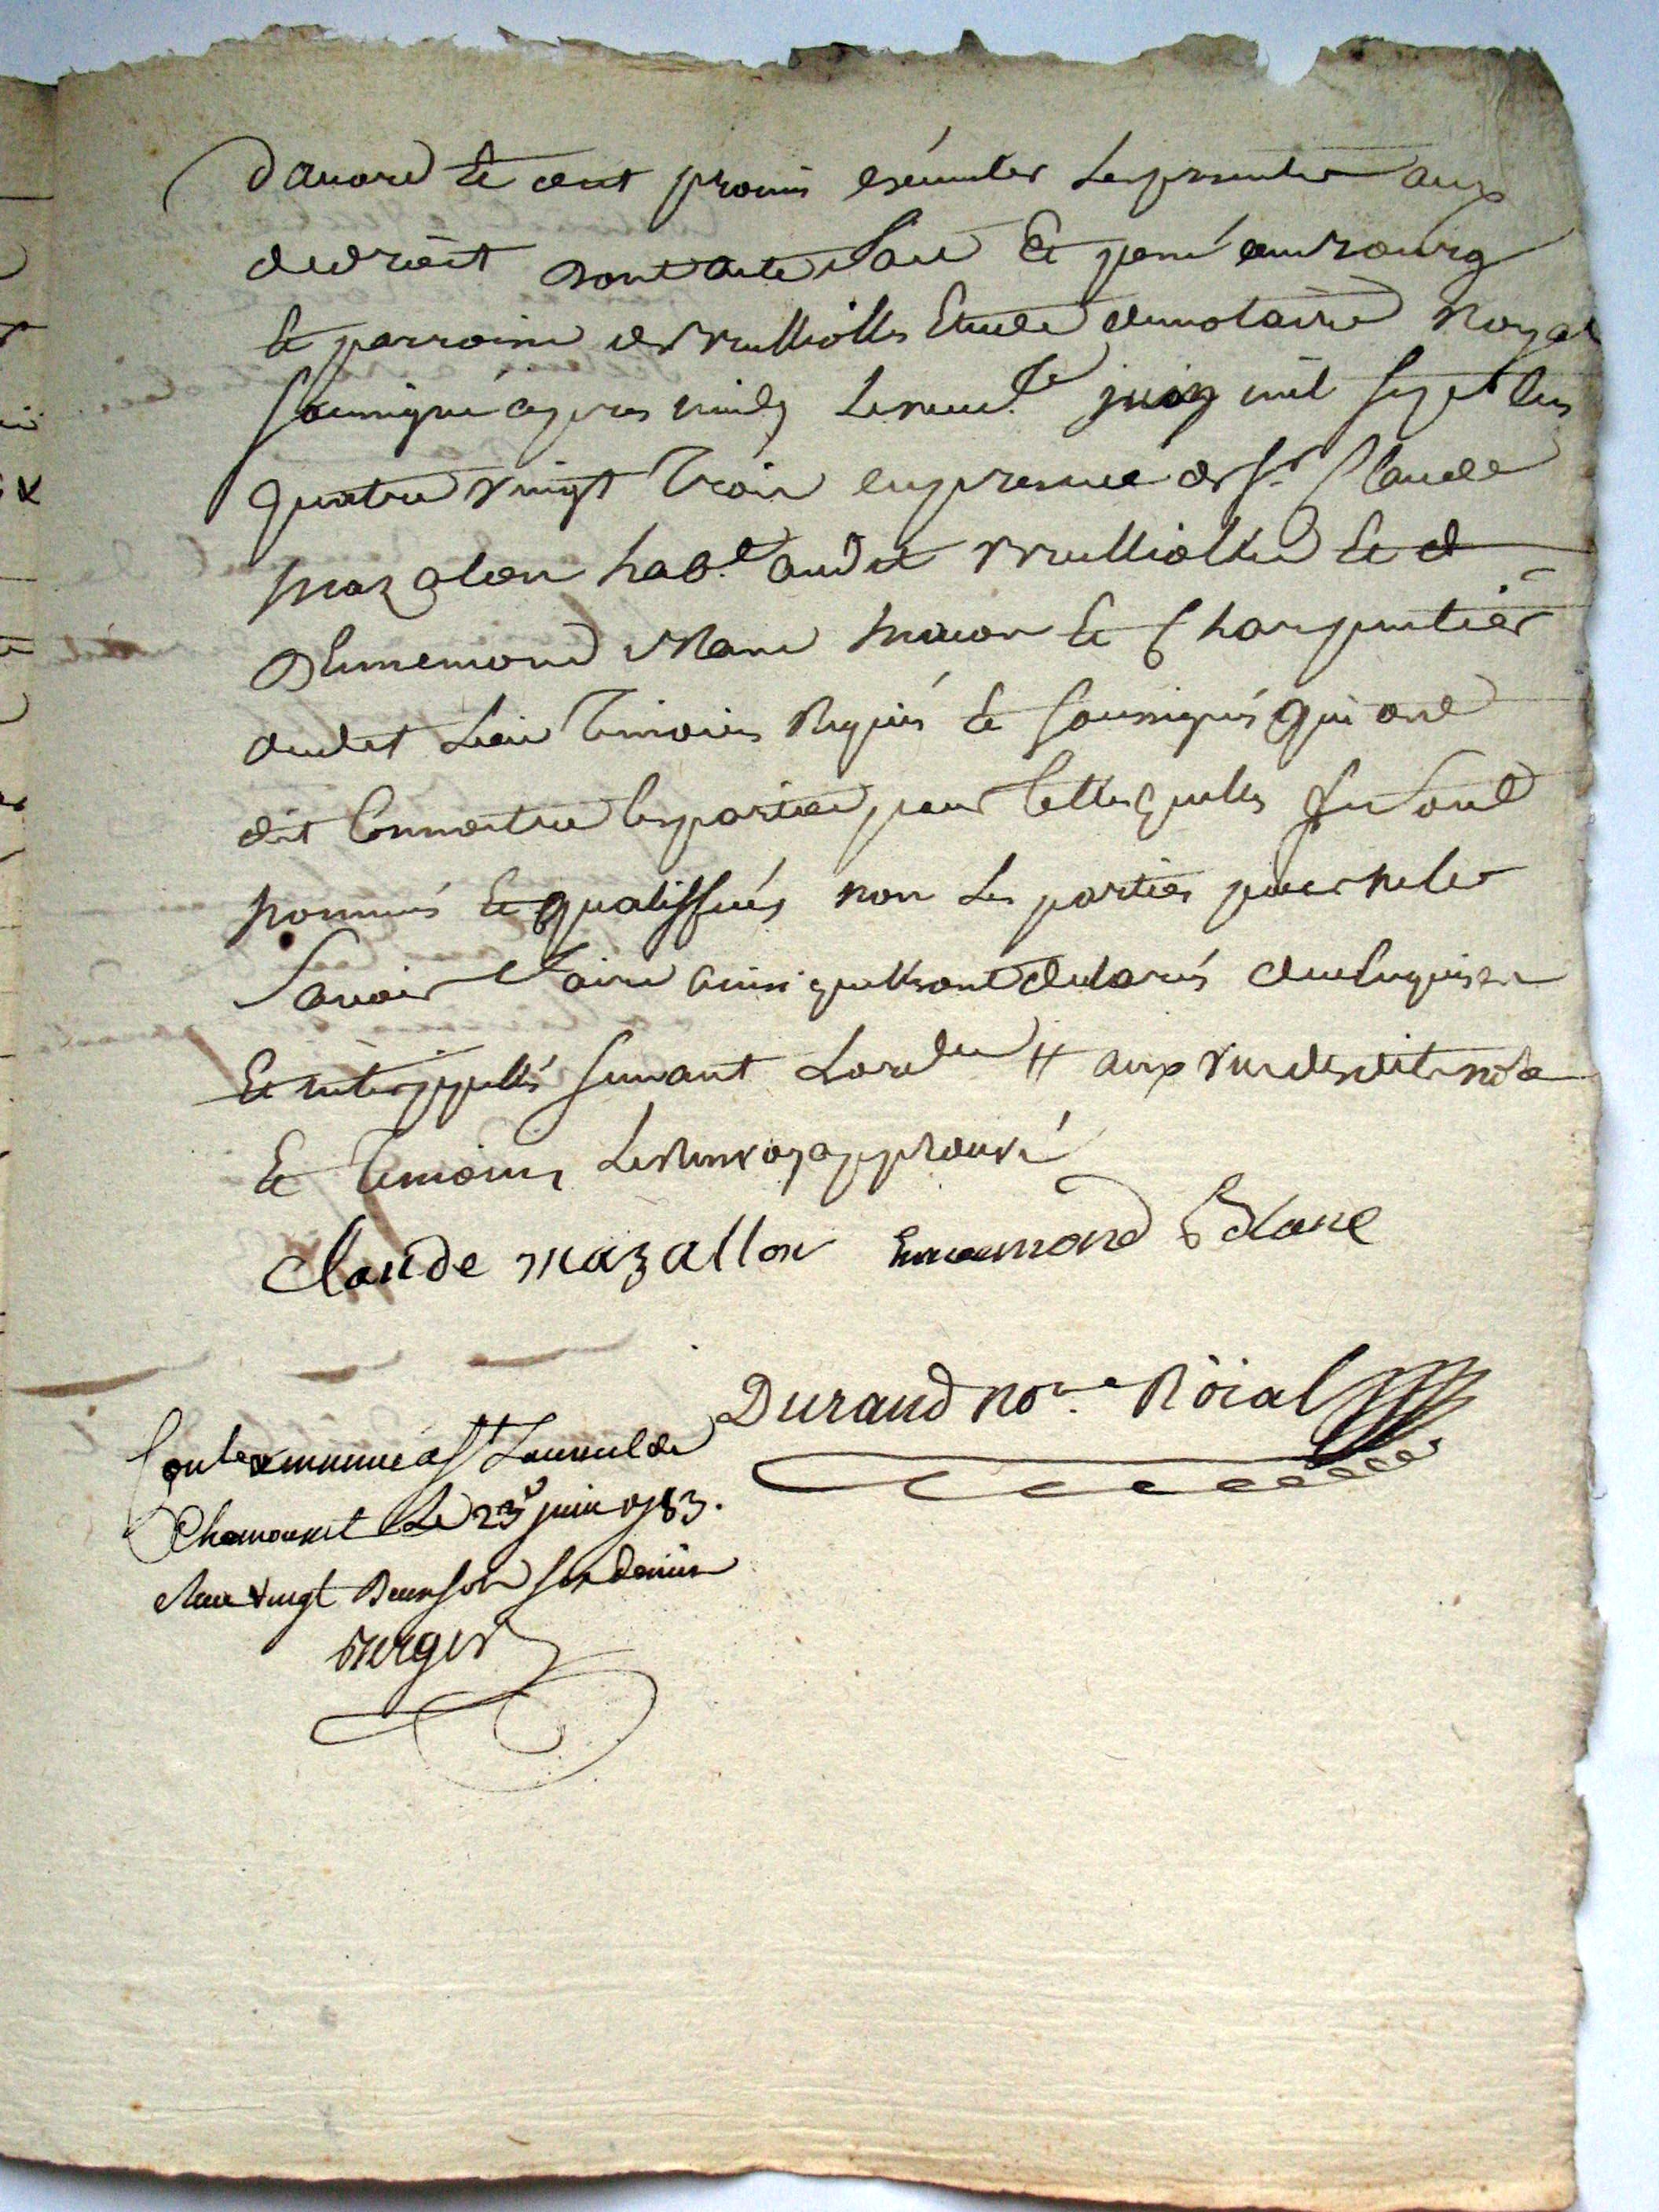 d'accord Et ont promis exécuter Les presentes aux
de droit dont acte fait Et passé au bourg
Et parroisse de Brullioles Etude du notaire Royal
soussigné apres midy Le neuf.e juin mil sept cens
quatre vingt trois en presence de sr. Claude
mazalon hab.t audit Brulliolles Et d
Ennemond Blanc maçon Et Charpentier
audit Lieu temoins Requis Et soussignés qui ont
dit Connoitre les parties pour telles quelles se sont
nommés Et qualiffiés non Les parties pour ne le
savoir faire ainsi quelles ont déclarés de ce Enquises
Et interppellés suivant Lord.ce # aux
Et temoins Le Renvoy approuvé
Claude mazallon Ennemond Blanc
Durand no.re Roial
Controllé a St Laurent de
Chamousset Le 23 juin 1783.
Reçu vingt Deux sols six deniers
Berger